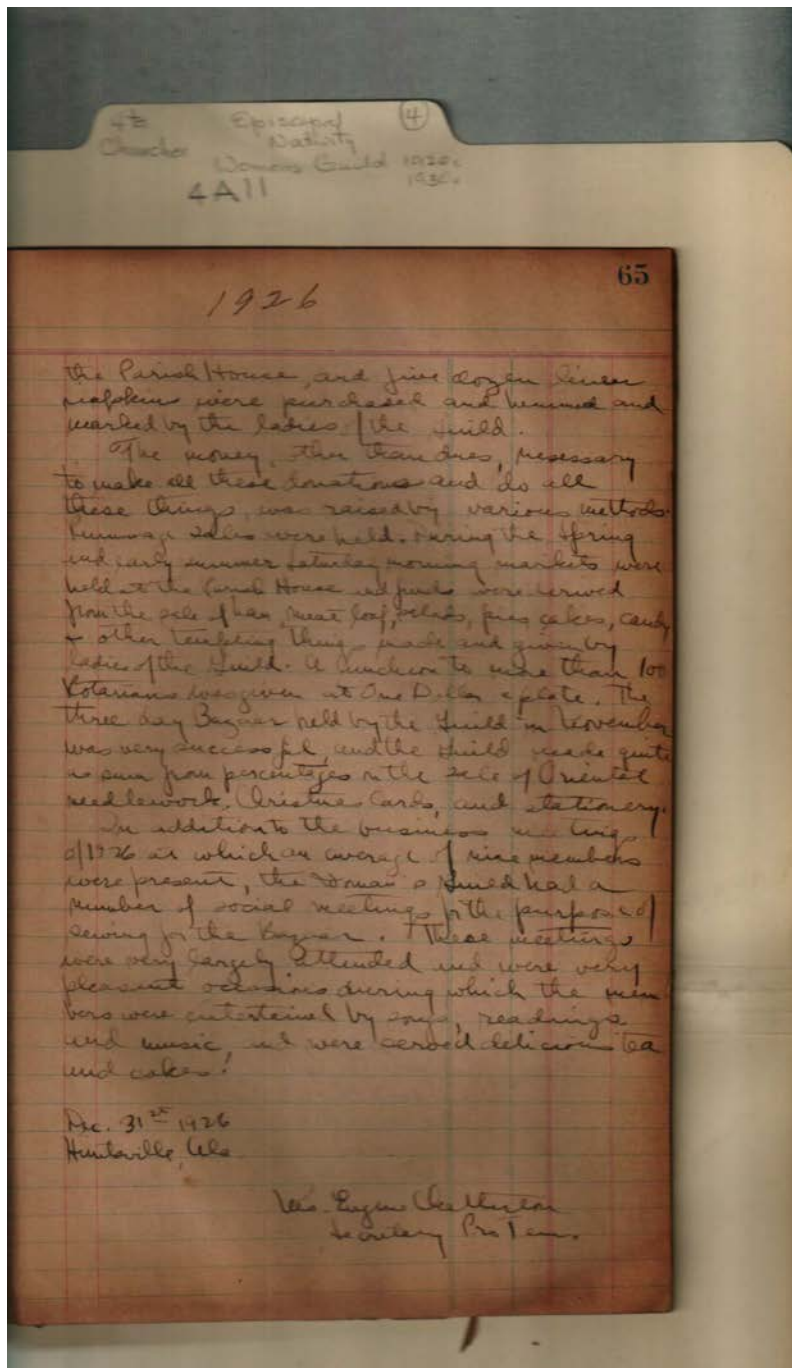 4ts Episcopal (4)
Churches Nativity
Womens Guild 1920s
1930s
4A11
65
1926
the Parish House, and five dozen linen
napkins were purchased and hemmed and
marked by the ladies of the Guild.
The money, other than dues, necessary
to make all these donations and do all
these things, was raised by various methods.
Rummage sales were held. During the Spring
and early summer Saturday morning markets were
held at the Parish House and funds were derived
from the sale of ham, meat loaf, salads, pies cakes, candy
& other tempting things made and given by
ladies of the Guild. A luncheon to more than 100
Rotarians was given at One Dollar a plate. The
three day Bazaar held by the Guild in November
was very successful, and the Guild made quite
a sum from percentages on the sale of Oriental
needlework, Christmas Cards, and stationery.
In addition to the business meetings
of 1926 at which an average of nine members
were present, the Woman's Guild had a
number of social meetings for the purpose of
sewing for the Bazaar. These meetings
were very largely attended and were very
pleasant occasions during which the mem
bers were entertained by songs, readings
and music, and were served delicious tea
and cakes!
Dec. 31st 1926
Huntsville, Ala
Mrs. Eugene
Secretary Pro Tem.